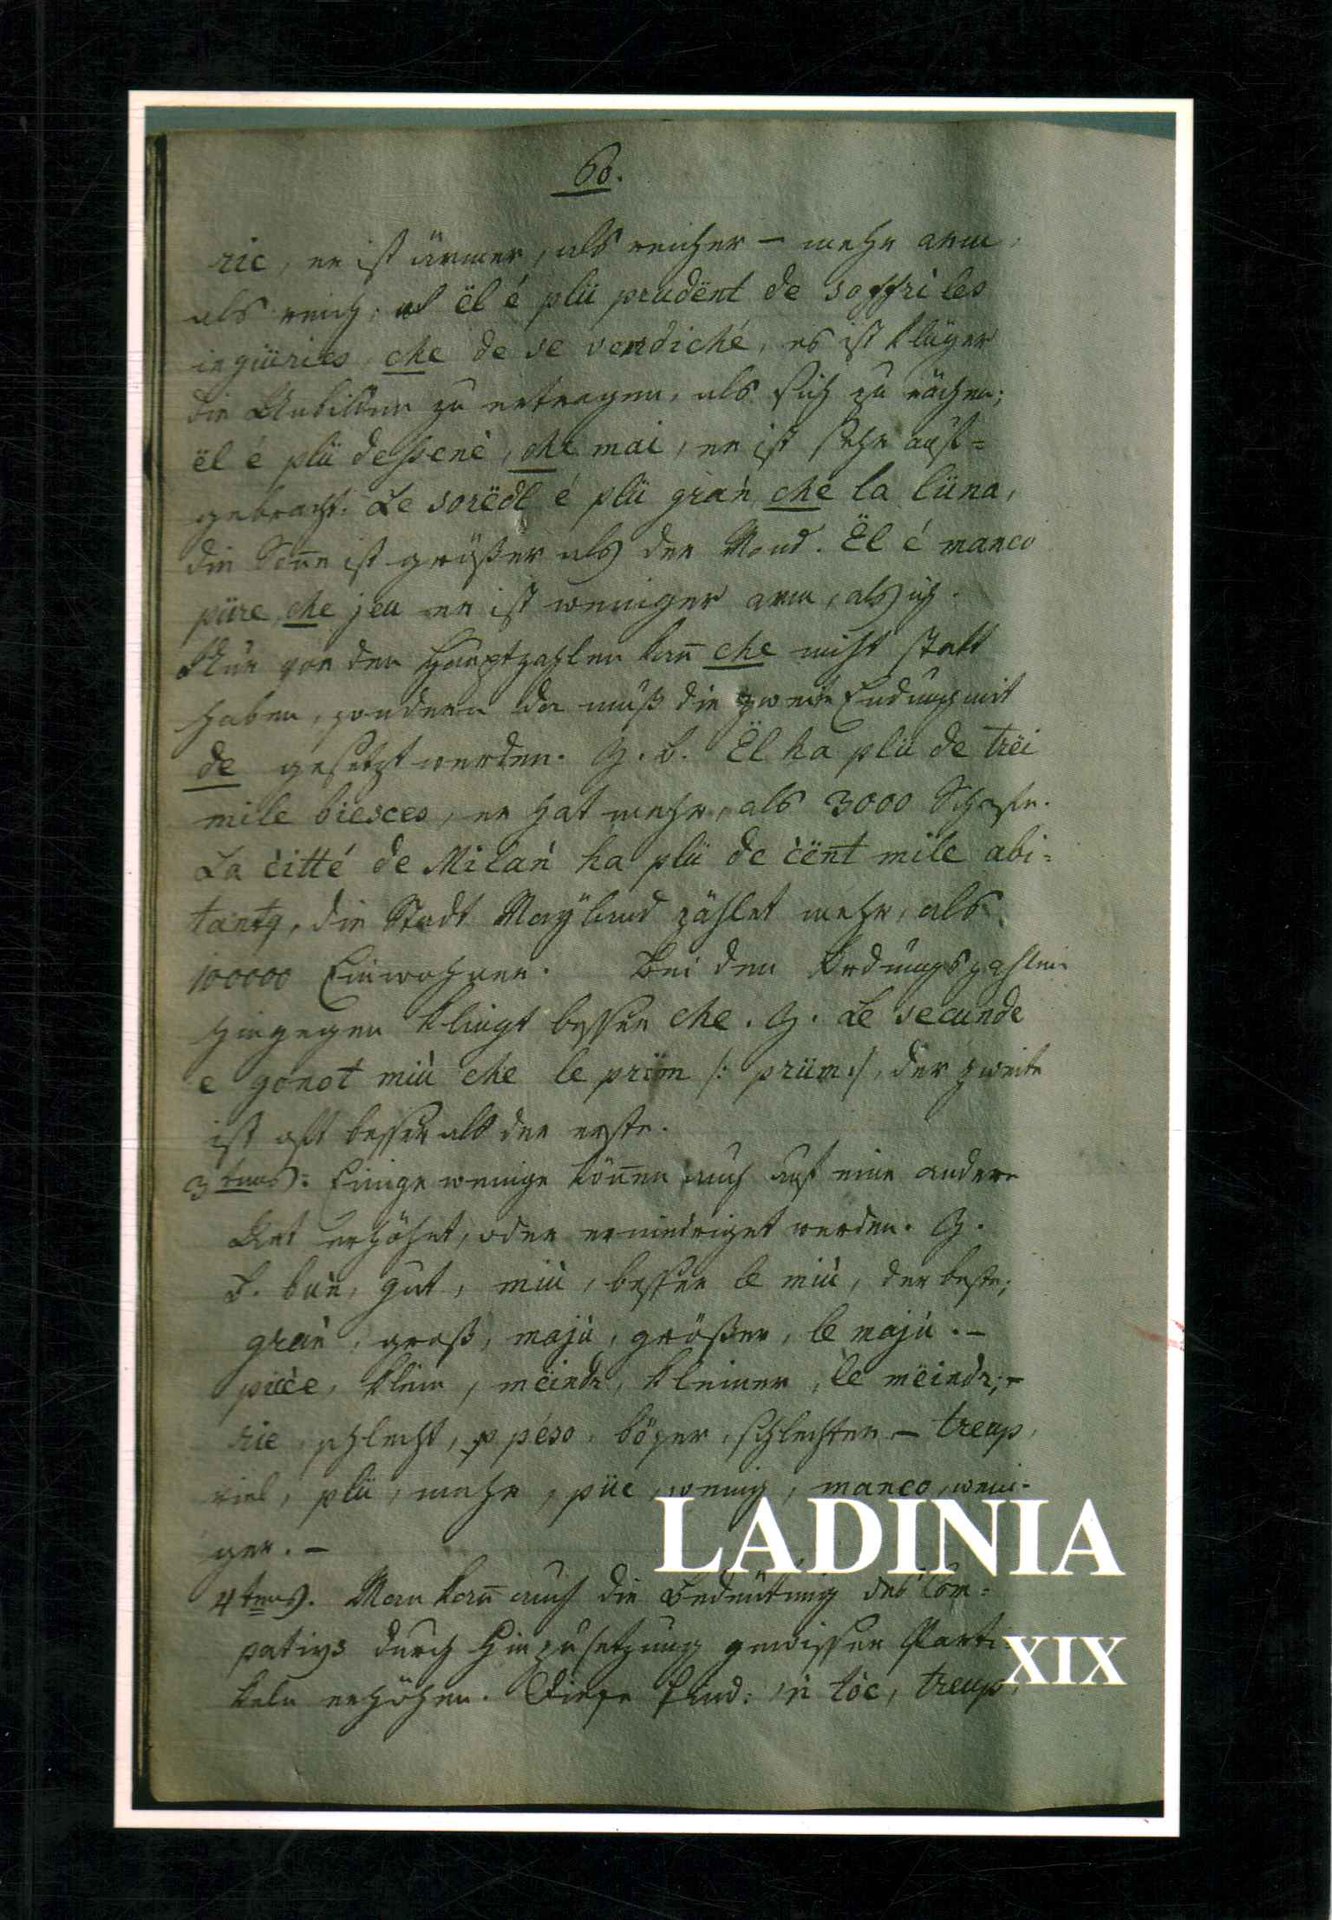 60.
ric, er ist ärmer, als reicher – mehr arm,
als reich; ël é plü prudënt de soffrì les
ingiüries che de se vendiché, es ist klüger
die Unbilden zu ertragen, als sich zu rächen;
ël é plü desſenè, che mai, er ist sehr auf=
gebracht. Le sorëdl é plü grań che la lüna,
die Soñe ist größer als der Mond. Ël é manco
püre, che jeu er ist weniger arm, als ich.
Nur vor den Hauptzahlen kañ che nicht statt
haben, sondern da muß die zweite Endung mit
de gesetzt werden. Z. B. Ël ha plü de trëi
mile biesces, er hat mehr, als 3000 Schafe.
La citté de Milań ha plü de cënt mile abi=
tantg, die Stadt Mayland zählet mehr, als
100000 Einwohner. Bei den Ordnungszahlen
hingegen klingt besser che. Z. Le secunde
e gonot miù che le prüm /: prüm :/, der zweite
ist oft besser als der erste.
3tens): Einige wenige köñen auch auf eine andere
Art erhöhet, oder erniedriget werden. Z.
B. buǹ, gut, miù, besser le miù, der beste;
grań, groß, majù, größer, le majù. –
picce, klein, mëindr, kleiner, le mëindr; –
rie, schlecht, péso, böser, schlechter – treup,
viel, plü, mehr, püc, wenig, manco, weni=
ger. –
4tens). Man kañ auch die Bedeutung des Com=
pativs durch Hinzusetzung gewisser Parti=
keln erhöhen. Diese sind: ń tòc, treup,
LADINIA
XIX